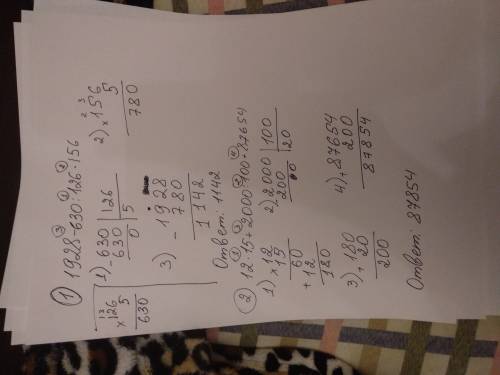 1) 1928-630:126·156
1) - 630 | 126
630 | 5
0
× 126
5
630
2) × 156
5
780
3) - 1928
780
1142
Ответ: 1142
2) 12·15+2000:100+87654
1) × 12
15
60
+ 12
180
2) 2000 | 100
- 200 | 20
0
3) + 180
20
200
4) + 87654
200
87854
Ответ: 87854